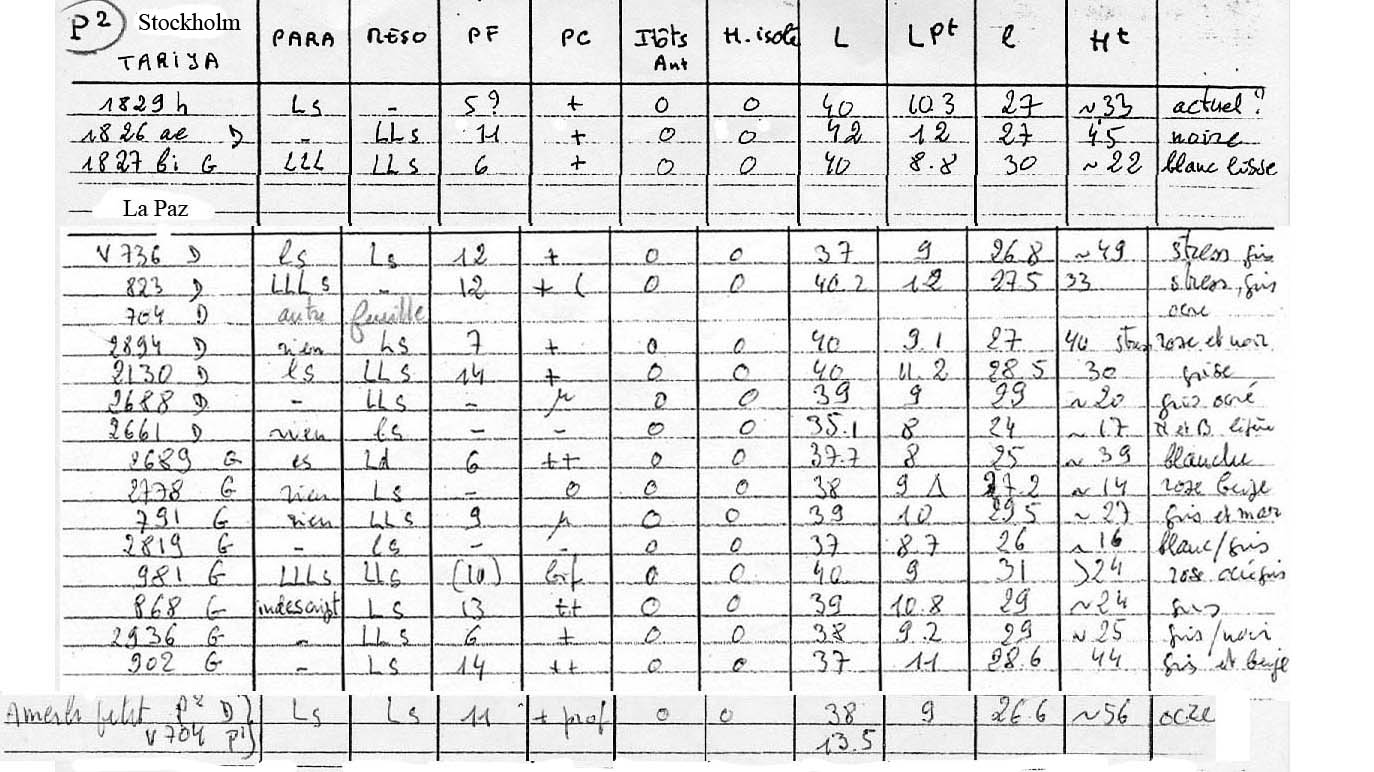 P² Stockholm
TARIJA PARA RESO PF PC Ilôts Ant H. isole L L Pt l Ht
1829 h Ls - 5? + 0 0 40 10.3 27 ~33 actuel?
1826 ae D - LLs 11 + 0 0 42 12 27 45 noire
1827 bi G LLL LLs 6 + 0 0 40 8.8 30 ~22 blanc lisse
La Paz
V 736 D ls Ls 12 + 0 0 37 9 26.8 ~49 stress gris
823 D LLLs - 12 + ( 0 0 40.2 12 27.5 33 stress, gris
704 D autre feuille ocre
2894 D rien Ls 7 + 0 0 40 9.1 27 40 stress rose et noir
2130 D ls LLs 14 + 0 0 40 11.2 28.5 30 grise
2688 D - LLs - µ 0 0 39 9 29 ~20 gris ocré
2661 D rien ls - - 0 0 35.1 8 24 ~17 N et B
2689 G es Ld 6 ++ 0 0 37.7 8 25 ~39 blanche
2778 G rien Ls - 0 0 0 38 9 1 27.2 ~14 rose beige
791 G rien LLs 9 µ 0 0 39 10 29.5 ~27 gris et mar
2819 G - ls - - 0 0 37 8.7 26 ~16 blanc/gris
981 G LLLs LLs (10) bif 0 0 40 9 31 >24 rose
868 G indescript Ls 13 ++ 0 0 39 10.8 29 ~24 gris
2936 G - LLs 6 + 0 0 38 9.2 29 ~25 gris/noir
902 G - Ls 14 ++ 0 0 37 11 28.6 44 gris et beige
petit P² D) Ls Ls 11 + prof 0 0 38 9 26.6 ~56 ocre
V 704 P¹) 13.5